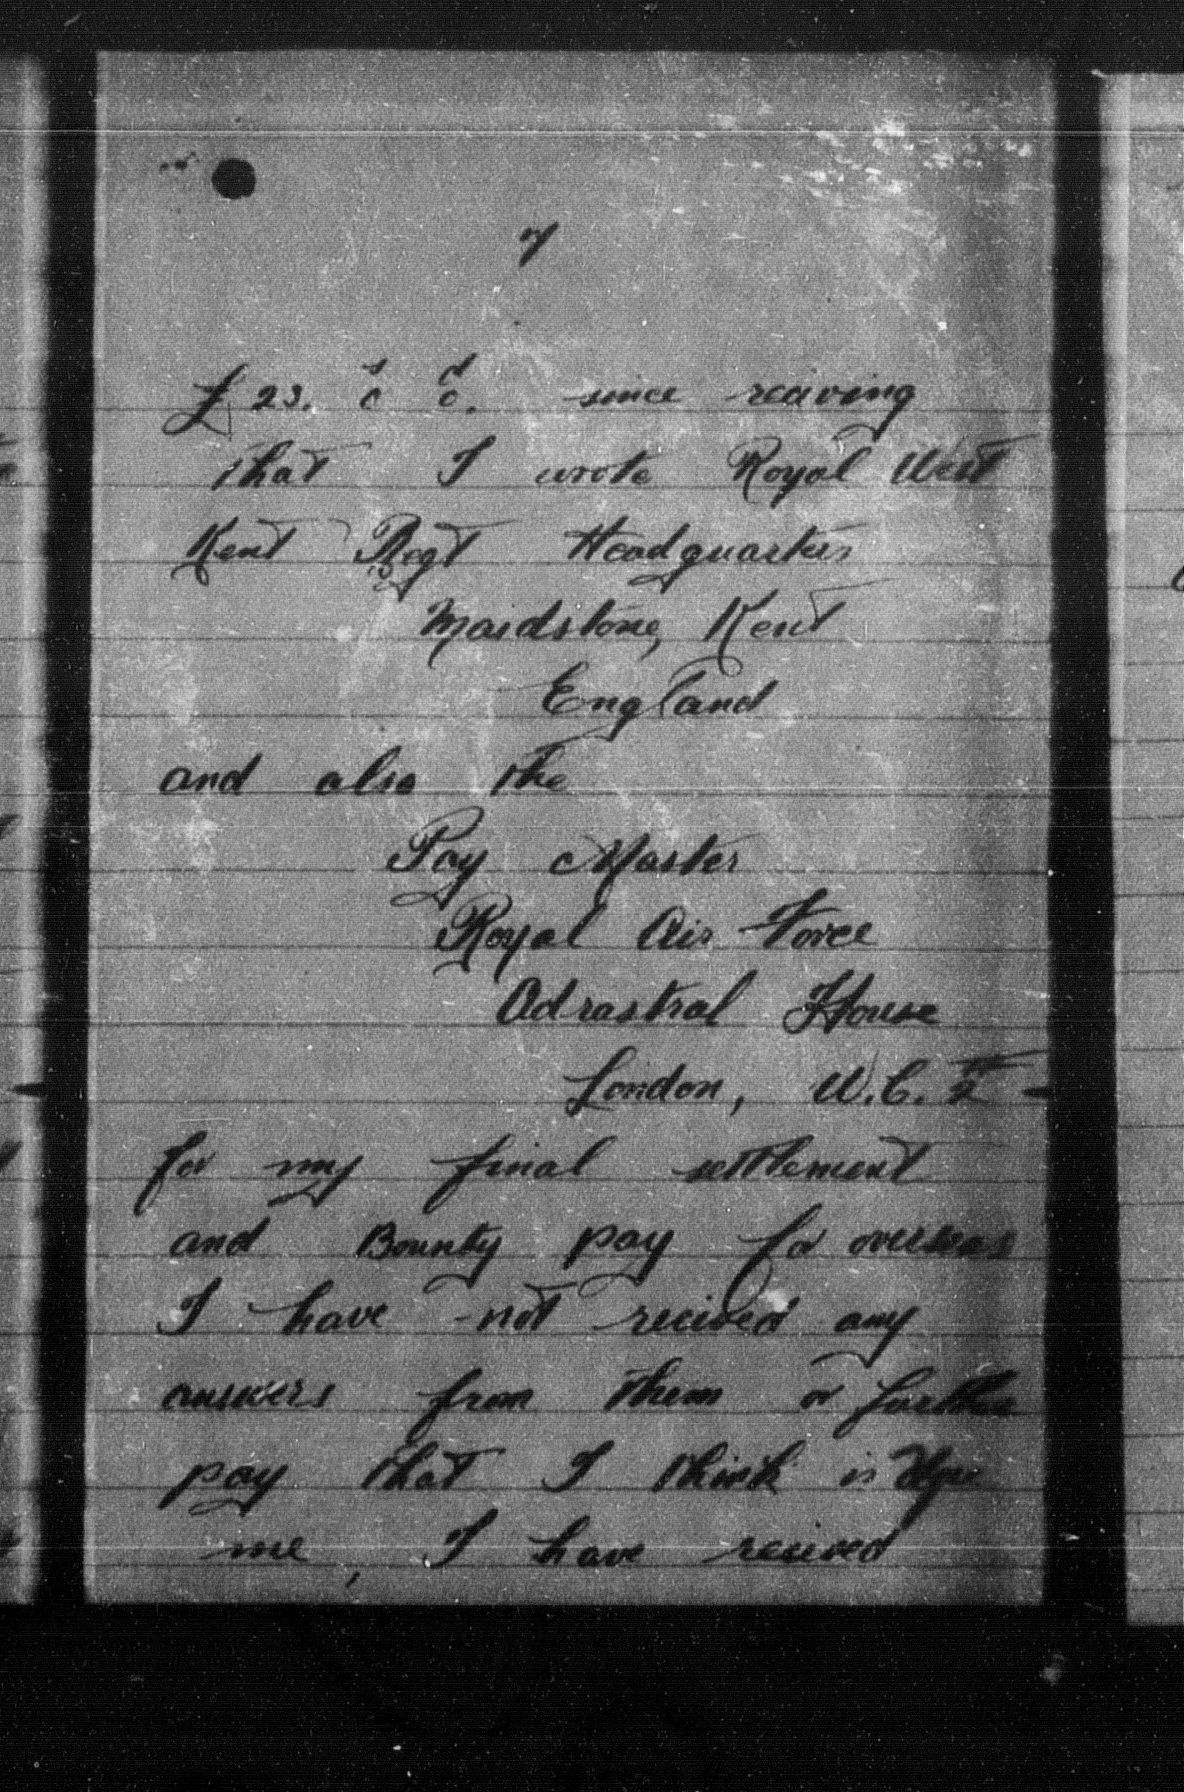 7
£ 23. 0s 0d. since reciving
that I wrote Royal West
Kent Regt Headquarters
Maidstone, Kent
England
and also the
Pay Master
Royal Air Force
Adrastral House
London, W.C. 2
for my final settlement
and Bounty pay for overseas
I have not recived any
answers from them or further
pay that I think is due
me, I have recived